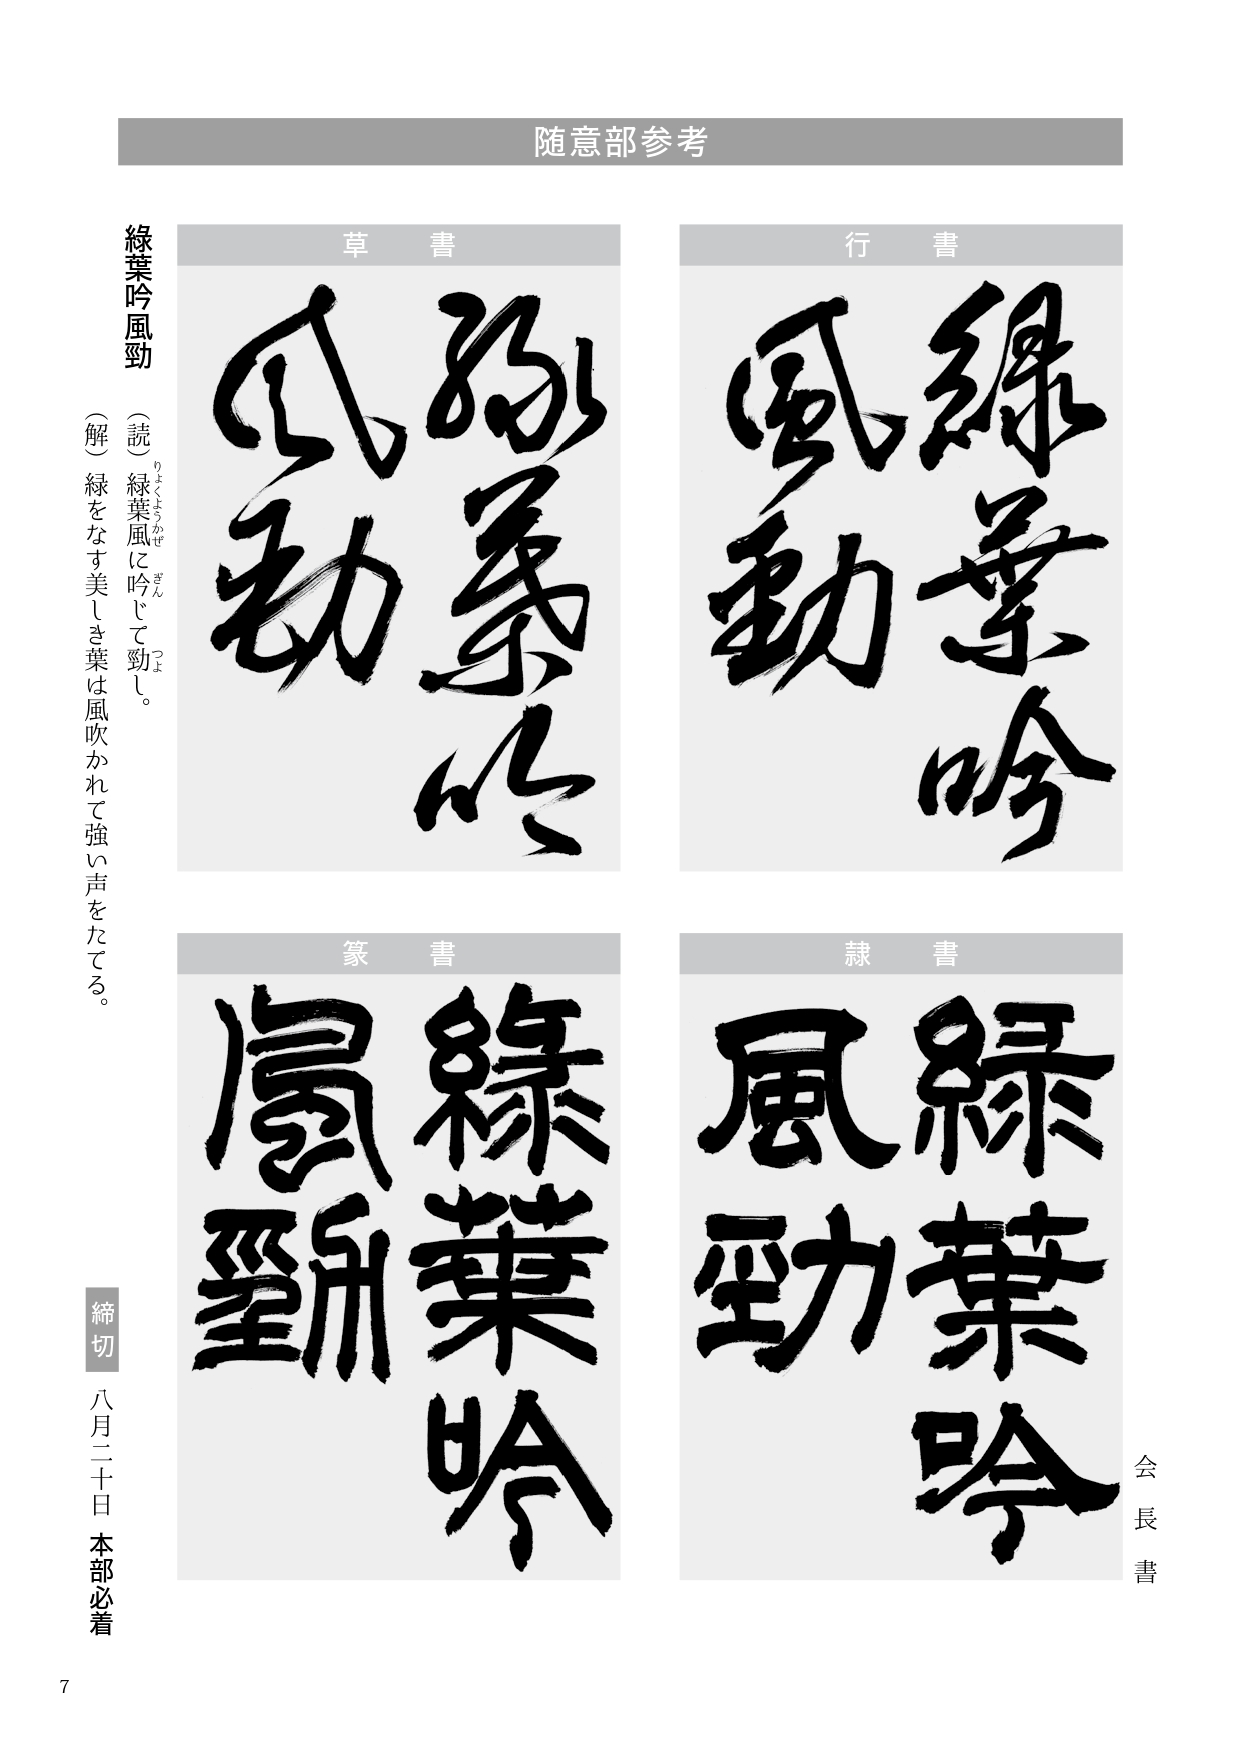 随意部参考
行 書
緑葉吟
風勁
草 書
緑葉吟
風勁
隷 書
緑葉吟
風勁
篆 書
緑葉吟
風勁
会長書
緑葉吟風勁
（読）緑葉風に吟じて勁し。
りょくようかぜ ぎん つよ
（解）緑をなす美しき葉は風吹かれて強い声をたてる。
締切 八月二十日 本部必着
7